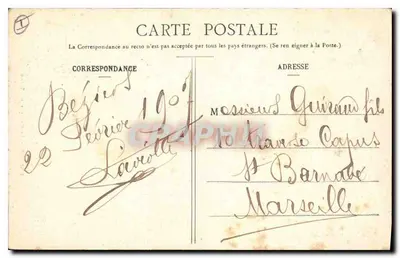 CARTE POSTALE
La Correspondance au recto n'est pas acceptée par tous les pays étrangers. (Se renseigner à la Poste.)
CORRESPONDANCE
Béziers
22 Février 1907
ADRESSE
Monsieur Guiraud fils
10 Traverse Capus
St Barnabé
Marseille